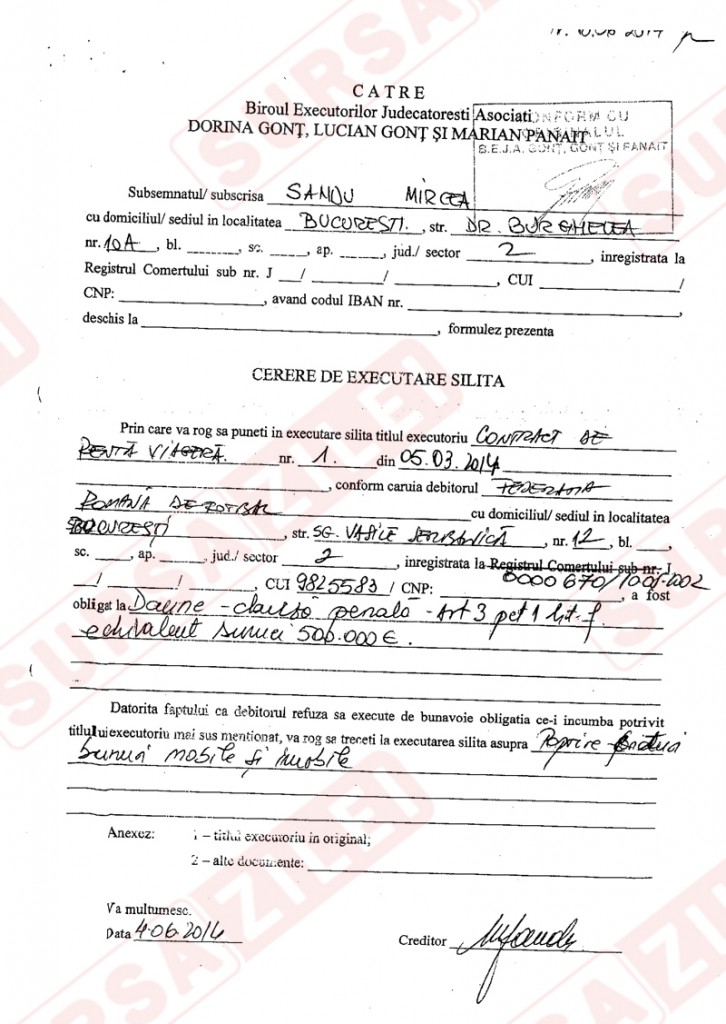 C A T R E
Biroul Executorilor Judecatoresti Asociati
DORINA GONȚ, LUCIAN GONȚ ȘI MARIAN PANAIT
CONFORM CU
ORIGINALUL
B.E.J.A. GONȚ, GONȚ ȘI PANAIT
Subsemnatul/ subscrisa SANDU MIRCEA
cu domiciliul/ sediul in localitatea BUCUREȘTI, str. DR. BURGHELEA
nr. 10A, bl. ____, sc. ____, ap. ____, jud./ sector 2, inregistrata la
Registrul Comertului sub nr. J ___/ ________/ ________, CUI ________/
CNP: ________, avand codul IBAN nr. ________,
deschis la ________, formulez prezenta
CERERE DE EXECUTARE SILITA
Prin care va rog sa puneti in executare silita titlul executoriu CONTRACT DE
RENTĂ VIAGERĂ nr. 1. din 05.03.2014
________, conform caruia debitorul FEDERATIA
ROMÂNĂ DE FOTBAL cu domiciliul/ sediul in localitatea
BUCUREȘTI, str. SG. VASILE SERBANICĂ, nr. 12, bl. ____,
sc. ____, ap. ____, jud./ sector 2, inregistrata la Registrul Comertului sub nr. J
___/ ________/ ________, CUI 9825583 / CNP: ________, a fost
obligat la Daune - clauză penală - Art 3 pct 1 lit. f.
echivalent sumei 500.000 €.
Datorita faptului ca debitorul refuza sa execute de bunavoie obligatia ce-i incumba potrivit
titlului executoriu mai sus mentionat, va rog sa treceti la executarea silita asupra Poprire
bunuri mobile și imobile
Anexez: 1 – titlul executoriu in original;
2 – alte documente: ________
Va multumesc.
Data 4.06.2014
Creditor
SURSA ZILEI